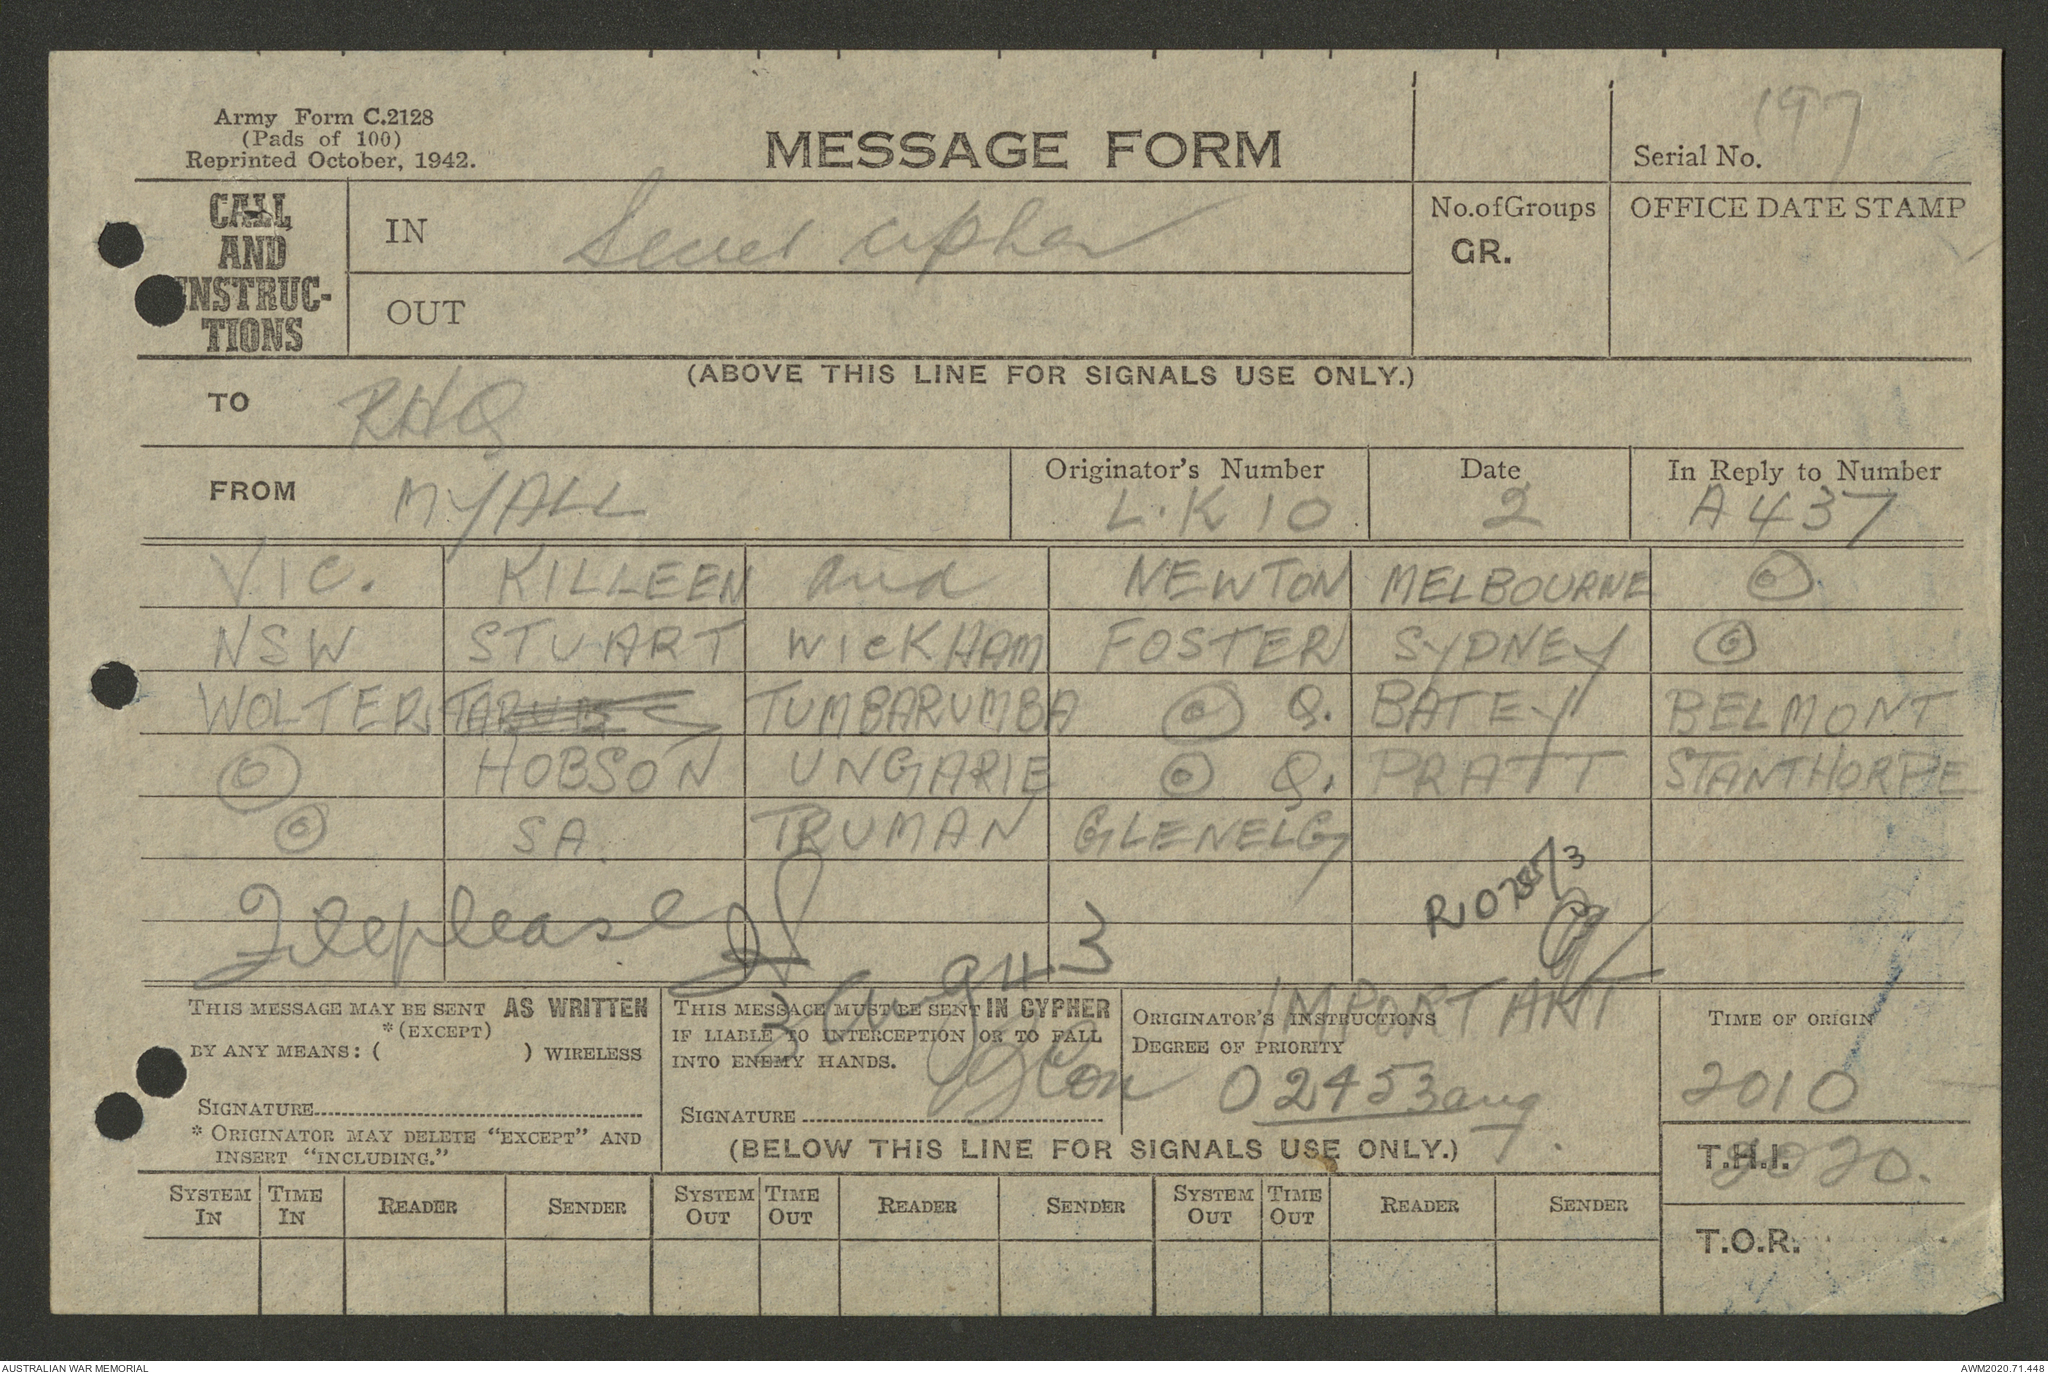 Army Form C.2128
(Pads of 100)
Reprinted October, 1942.
MESSAGE FORM
Serial No. 197
CALL AND INSTRUC-TIONS
IN Secret cipher
OUT
No. of Groups
GR.
OFFICE DATE STAMP
(ABOVE THIS LINE FOR SIGNALS USE ONLY.)
TO RHQ
FROM MYALL
Originator's Number L.K 10
Date 2
In Reply to Number A 437
VIC. KILLEEN and NEWTON MELBOURNE ⊙
NSW STUART WICKHAM FOSTER SYDNEY ⊙
WOLTER TUMBARUMBA ⊙ Q. BATEY BELMONT
⊙ HOBSON UNGARIE ⊙ Q. PRATT STANTHORPE
⊙ SA. TRUMAN GLENELG
File please
3 Aug 43
THIS MESSAGE MAY BE SENT AS WRITTEN
*(EXCEPT)
BY ANY MEANS: ( ) WIRELESS
SIGNATURE
* ORIGINATOR MAY DELETE "EXCEPT" AND
INSERT "INCLUDING."
THIS MESSAGE MUST BE SENT IN CYPHER
IF LIABLE TO INTERCEPTION OR TO FALL
INTO ENEMY HANDS.
SIGNATURE
IMPORTANT
ORIGINATOR'S INSTRUCTIONS
DEGREE OF PRIORITY
02453 aug
TIME OF ORIGIN
2010
T.H.I. 2020.
T.O.R.
(BELOW THIS LINE FOR SIGNALS USE ONLY.)
SYSTEM IN TIME IN READER SENDER SYSTEM OUT TIME OUT READER SENDER SYSTEM OUT TIME OUT READER SENDER
AUSTRALIAN WAR MEMORIAL AWM2020.71.448